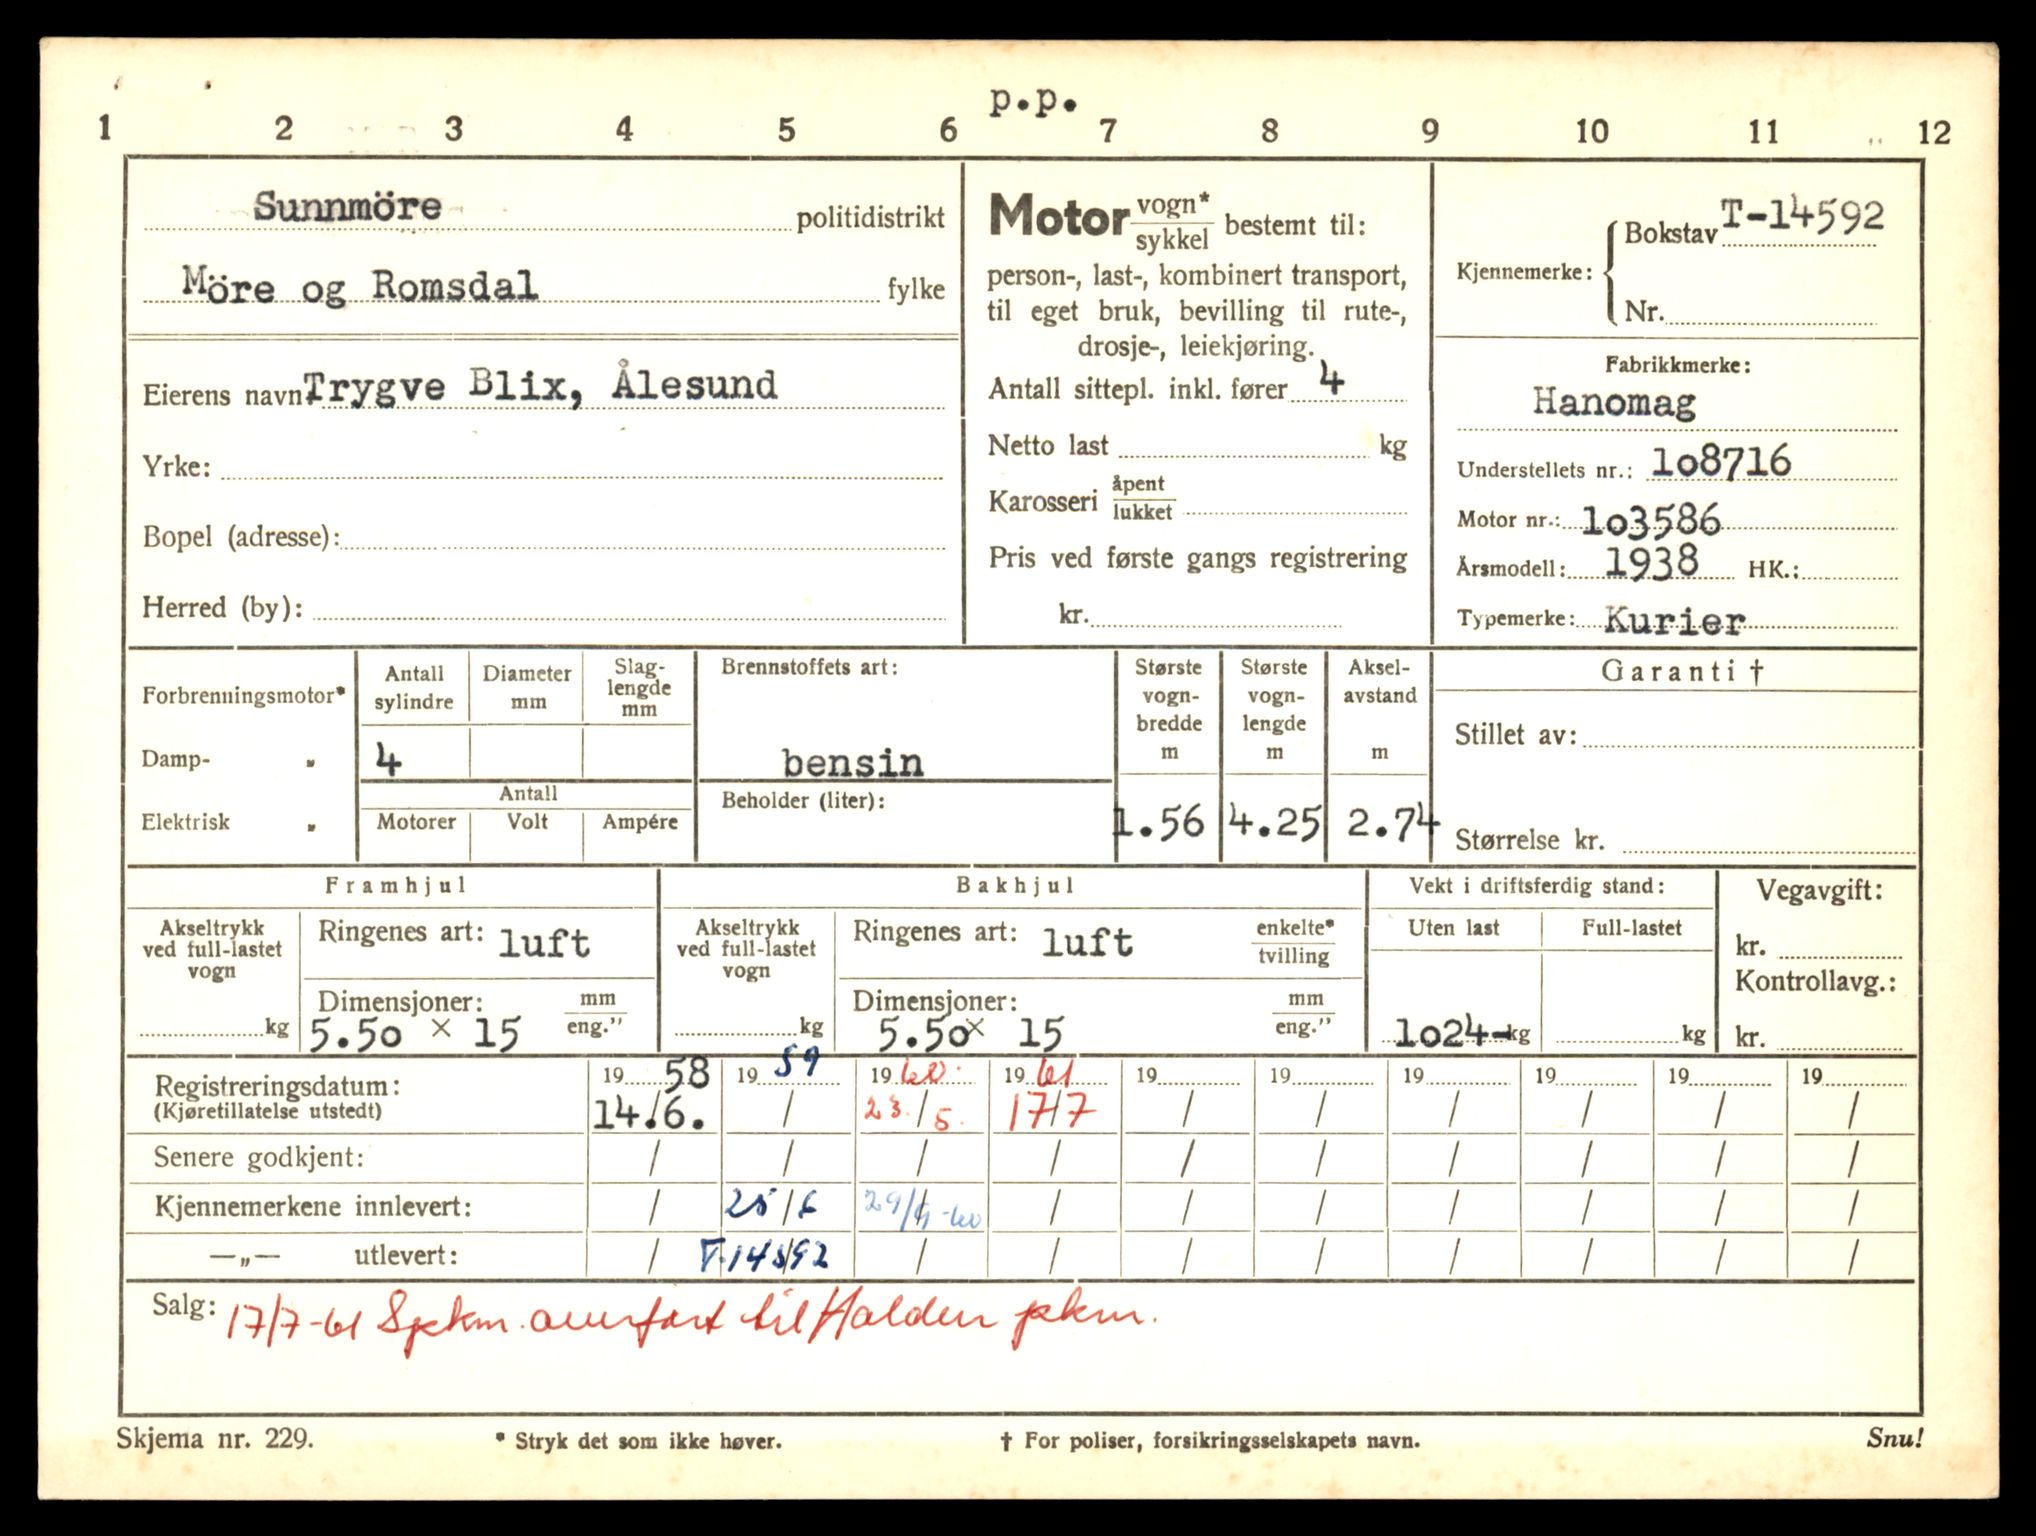 p.p.
1 2 3 4 5 6 7 8 9 10 11 12
Sunnmöre politidistrikt
Möre og Romsdal fylke
Eierens navn: Trygve Blix, Ålesund
Yrke:
Bopel (adresse):
Herred (by):
Motor vogn* / sykkel bestemt til:
person-, last-, kombinert transport,
til eget bruk, bevilling til rute-,
drosje-, leiekjøring.
Antall sittepl. inkl. fører 4
Netto last kg
Karosseri åpent / lukket
Pris ved første gangs registrering
kr.
Kjennemerke: Bokstav T-14592
Nr.
Fabrikkmerke:
Hanomag
Understellets nr.: 1o8716
Motor nr.: 1o3586
Årsmodell: 1938 HK.:
Typemerke: Kurier
Forbrenningsmotor*
Damp- „
Elektrisk „
Antall sylindre
Diameter mm
Slag-
lengde
mm
4
Antall
Motorer Volt Ampére
Brennstoffets art:
bensin
Beholder (liter):
Største
vogn-
bredde
m
1.56
Største
vogn-
lengde
m
4.25
Aksel-
avstand
m
2.74
Garanti †
Stillet av:
Størrelse kr.
Framhjul
Akseltrykk
ved full-lastet
vogn
kg
Ringenes art: luft
Dimensjoner: mm / eng."
5.5o × 15
Bakhjul
Akseltrykk
ved full-lastet
vogn
kg
Ringenes art: luft enkelte* / tvilling
Dimensjoner: mm / eng."
5.5o × 15
Vekt i driftsferdig stand:
Uten last Full-lastet
1o24- kg kg
Vegavgift:
kr.
Kontrollavg.:
kr.
Registreringsdatum: 19 58 19 59 19 60. 19 61 19 19 19 19 19 19
(Kjøretillatelse utstedt) 14./6. / 23./5. 17/7 / / / / / /
Senere godkjent: / / / / / / / / / /
Kjennemerkene innlevert: / 25/6 29/9-60 / / / / / / /
—„— utlevert: / T.14592 / / / / / / / /
Salg: 17/7-61 Spekm. overført til Halden pkm.
Skjema nr. 229. * Stryk det som ikke høver. † For poliser, forsikringsselskapets navn. Snu!